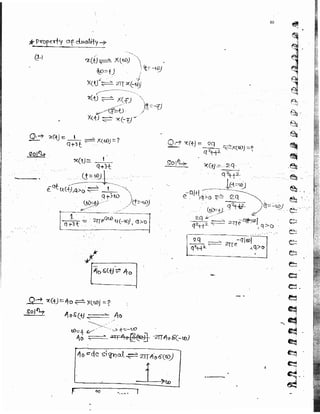 * Property of duality →
x(t) ⇌ X(ω)
ω=t
t=-ω
X(t) ⇌ 2π x(-ω)
x(t) ⇌ X(f)
f=t
t=-f
X(t) ⇌ x(-f)
Q→ x(t) = 1/(a+jt) ⇌ X(ω) = ?
Soln→
x(t) = 1/(a+jt)
(t=ω)
e^-at u(t), a>0 ⇌ 1/(a+jω)
(ω=t)
(t=-ω)
1/(a+jt) ⇌ 2π e^aω u(-ω), a>0
Q→ x(t) = 2a/(a²+t²) ⇌ X(ω) = ?
Soln→ x(t) = 2a/(a²+t²)
(t=ω)
e^-a|t|, a>0 ⇌ 2a/(a²+ω²)
(ω=t)
(t=-ω)
2a/(a²+t²) ⇌ 2π e^-a|-ω|, a>0
2a/(a²+t²) ⇌ 2π e^-a|ω|, a>0
A₀ δ(t) ⇌ A₀
Q→ x(t) = A₀ ⇌ X(ω) = ?
Soln→ A₀ δ(t) ⇌ A₀
ω=t
t=-ω
A₀ ⇌ 2π A₀ δ(-ω)
A₀ = dc signal ⇌ 2π A₀ δ(ω)
→ω